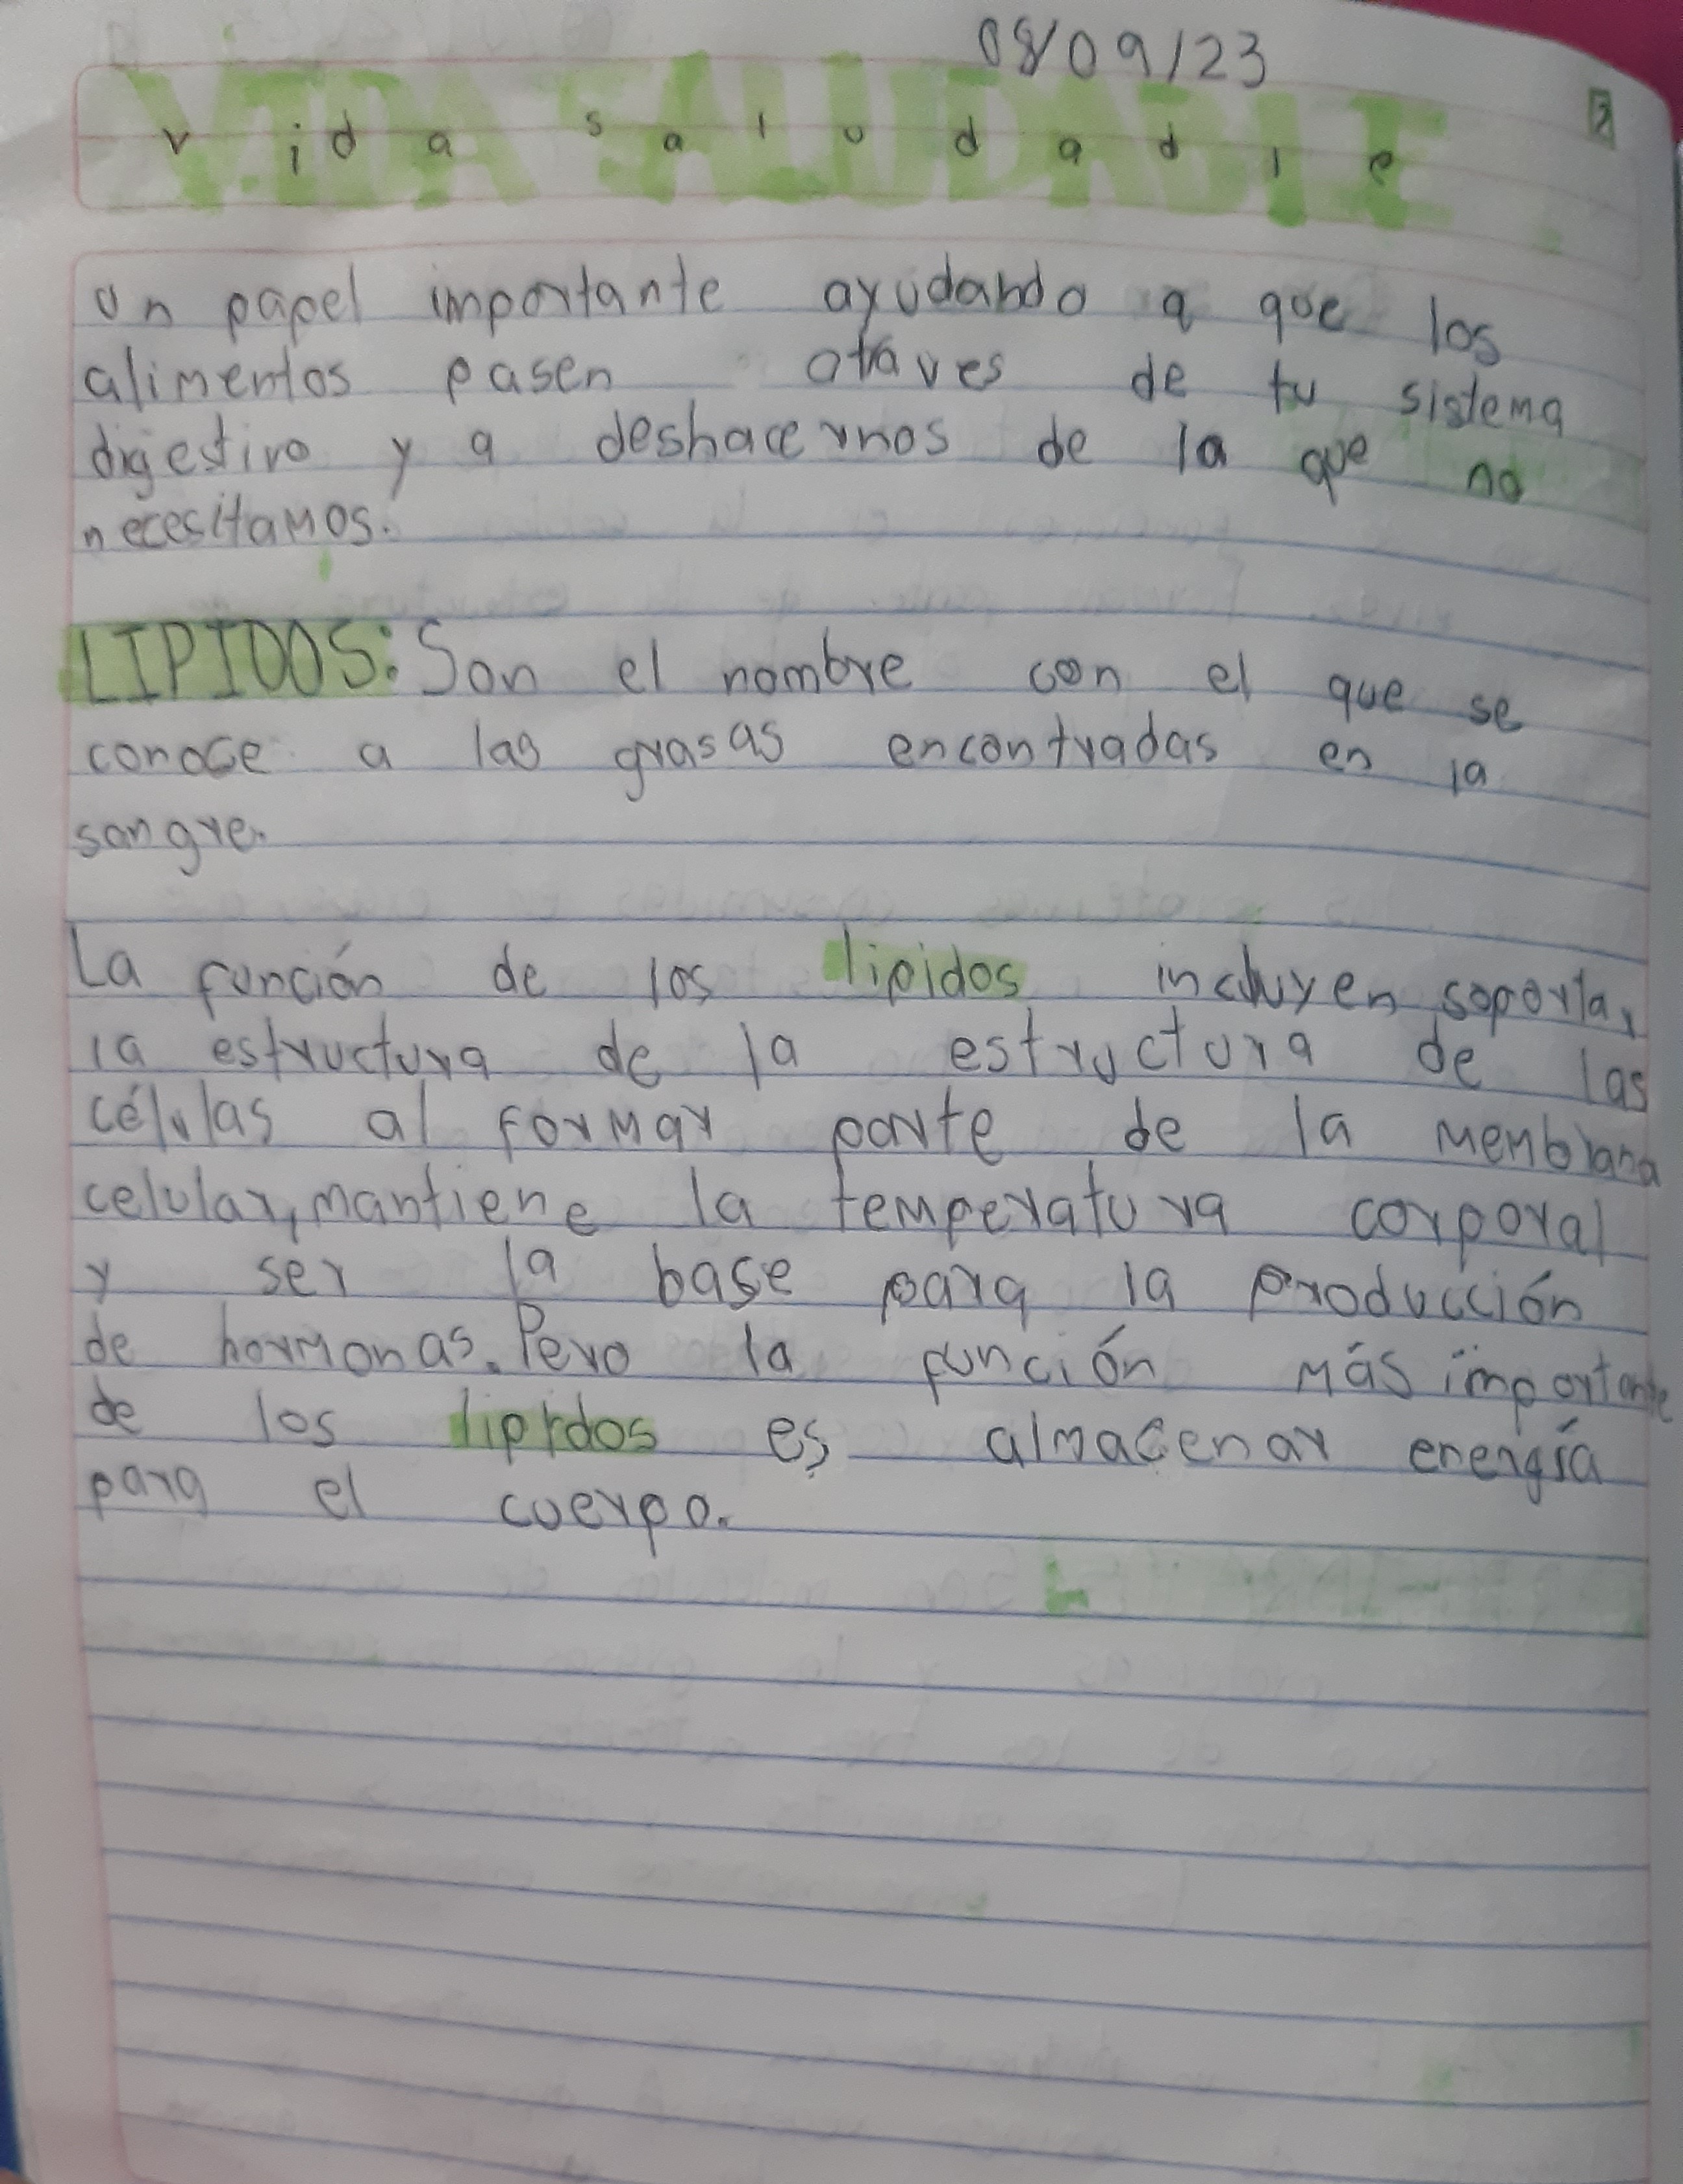 08/09/23
2
vida saludable
un papel importante ayudando a que los
alimentos pasen atraves de tu sistema
digestivo y a deshacernos de la que no
necesitamos.
LIPIDOS: Son el nombre con el que se
conoce a las grasas encontradas en la
sangre.
La función de los lipidos incluyen soporta,
la estructura de la estructura de las
células al formar parte de la membrana
celular, mantiene la temperatura corporal
y ser la base para la producción
de hormonas. Pero la función más importante
de los lipidos es almacenar energía
para el cuerpo.